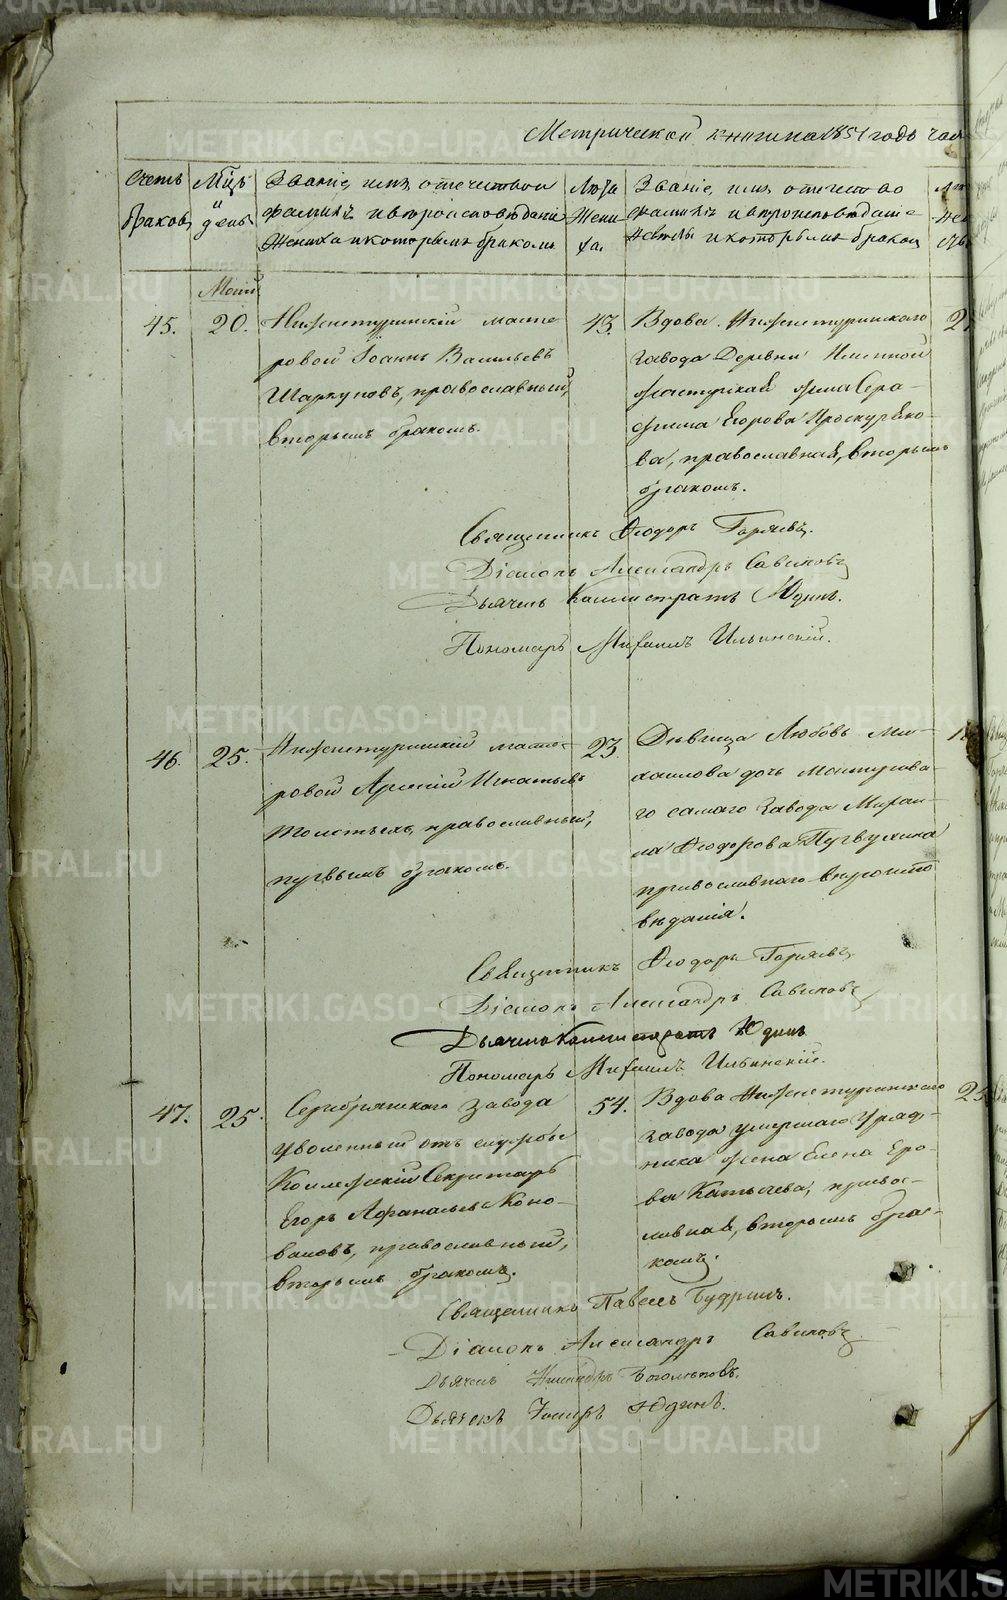 Метрической книги на 1851 годъ час
Счетъ браковъ
Мѣцъ и день
Званіе, имя, отечество
фамилія и вѣроисповѣданіе
жениха и которымъ бракомъ
Лѣта жени ха.
Званіе, имя, отечество
фамилія и вѣроисповѣданіе
невѣсты и которымъ бракомъ
Маій
45.
20.
Нижнетуринскій масте
ровой Іоаннъ Васильевъ
Шаркуновъ, православный,
вторымъ бракомъ.
43.
Вдова Нижнетуринскаго
завода Деревни Именной
жена Сера-
фима Егорова Проскуряко-
ва, православная, вторымъ
бракомъ.
Священникъ Ѳеодоръ Горяевъ.
Діаконъ Александръ Савиновъ
Дьячекъ Каллистратъ Юдинъ.
Пономарь Михаилъ Ильинскій.
46.
25.
Нижнетуринскій масте-
ровой Арсеній Игнатьевъ
православный,
первымъ бракомъ.
23.
Дѣвица Любовь Ми-
хаилова дочь мастерова-
го самаго завода Михаи-
ла Ѳеодорова
православнаго вѣроиспо
вѣданія.
Священникъ Ѳеодоръ Горяевъ.
Діаконъ Александръ Савиновъ
Дьячекъ Каллистратъ Юдинъ
Пономарь Михаилъ Ильинскій.
47.
25.
Серебрянскаго завода
уволенный отъ службы
Коллежскій Секретарь
Егоръ Аѳанасьевъ Коно-
валовъ, православный,
вторымъ бракомъ.
54.
Вдова Нижнетуринскаго
завода умершаго Уряд-
ника жена Елена Его-
ва православ-
ливная, вторымъ бра-
комъ.
25
Священникъ Павелъ Будринъ.
Діаконъ Александръ Савиновъ.
Дьячекъ Боголѣповъ.
Дьячекъ Юдинъ.
METRIKI.GASO-URAL.RU